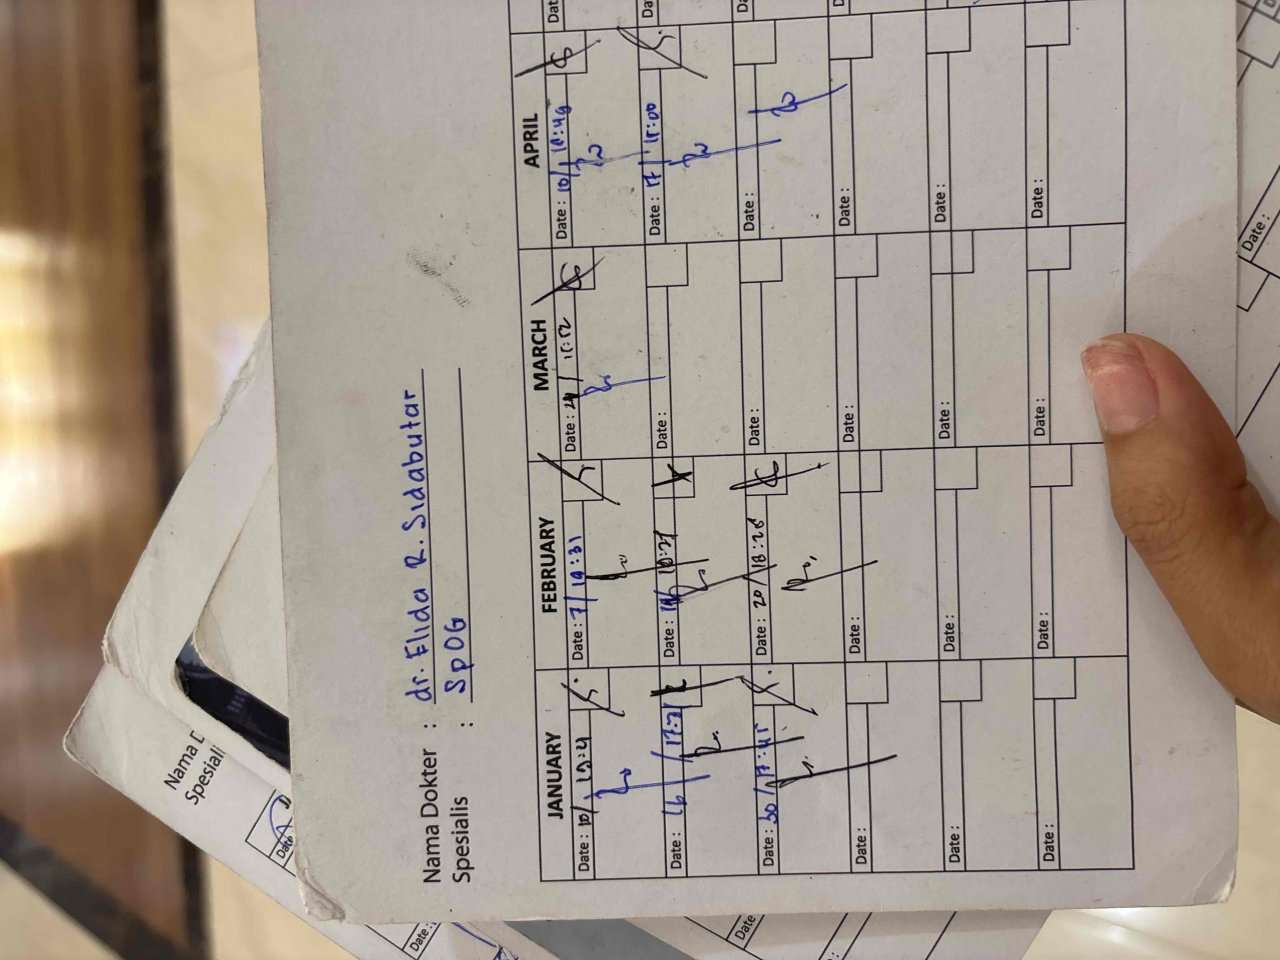 Nama Dokter : dr. Elida R. Sidabutar
Spesialis : SpOG
JANUARY FEBRUARY MARCH APRIL
Date : 10/ Date : 7/ 19:31 Date : Date : 10/ 18:49
Date : 16 / 17:21 Date : Date : Date : 17 / 15:00
Date : 30/ 17:45 Date : 20/ 18:28 Date : Date :
Date : Date : Date : Date :
Date : Date : Date : Date :
Date : Date : Date : Date :
Nama D
Spesiali
Date
Date :
Date
Date :